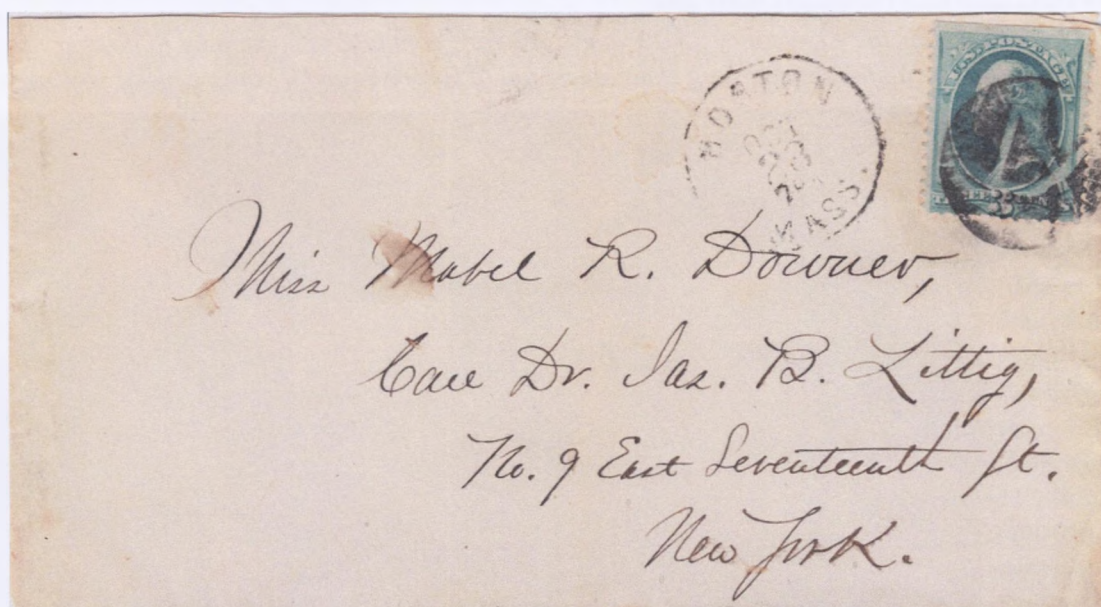 U.S. POSTAGE
BOSTON
MASS.
Miss Mabel R. Downer,
Care Dr. Jas. B. Littig,
No. 9 East Seventeenth St.
New York.